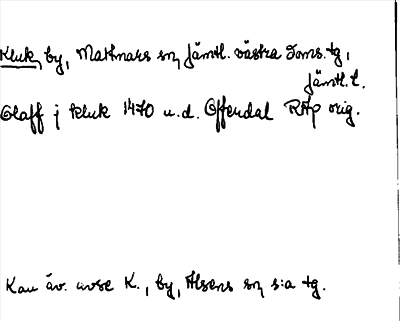 Kluk, by, Mattmars sn, Jämtl. västra doms. tg,
Jämtl. l.
Olaff j Kluk 1470 u.d. Offerdal RAp orig.
Kan äv. avse K., by, Alsens sn, s:a tg.